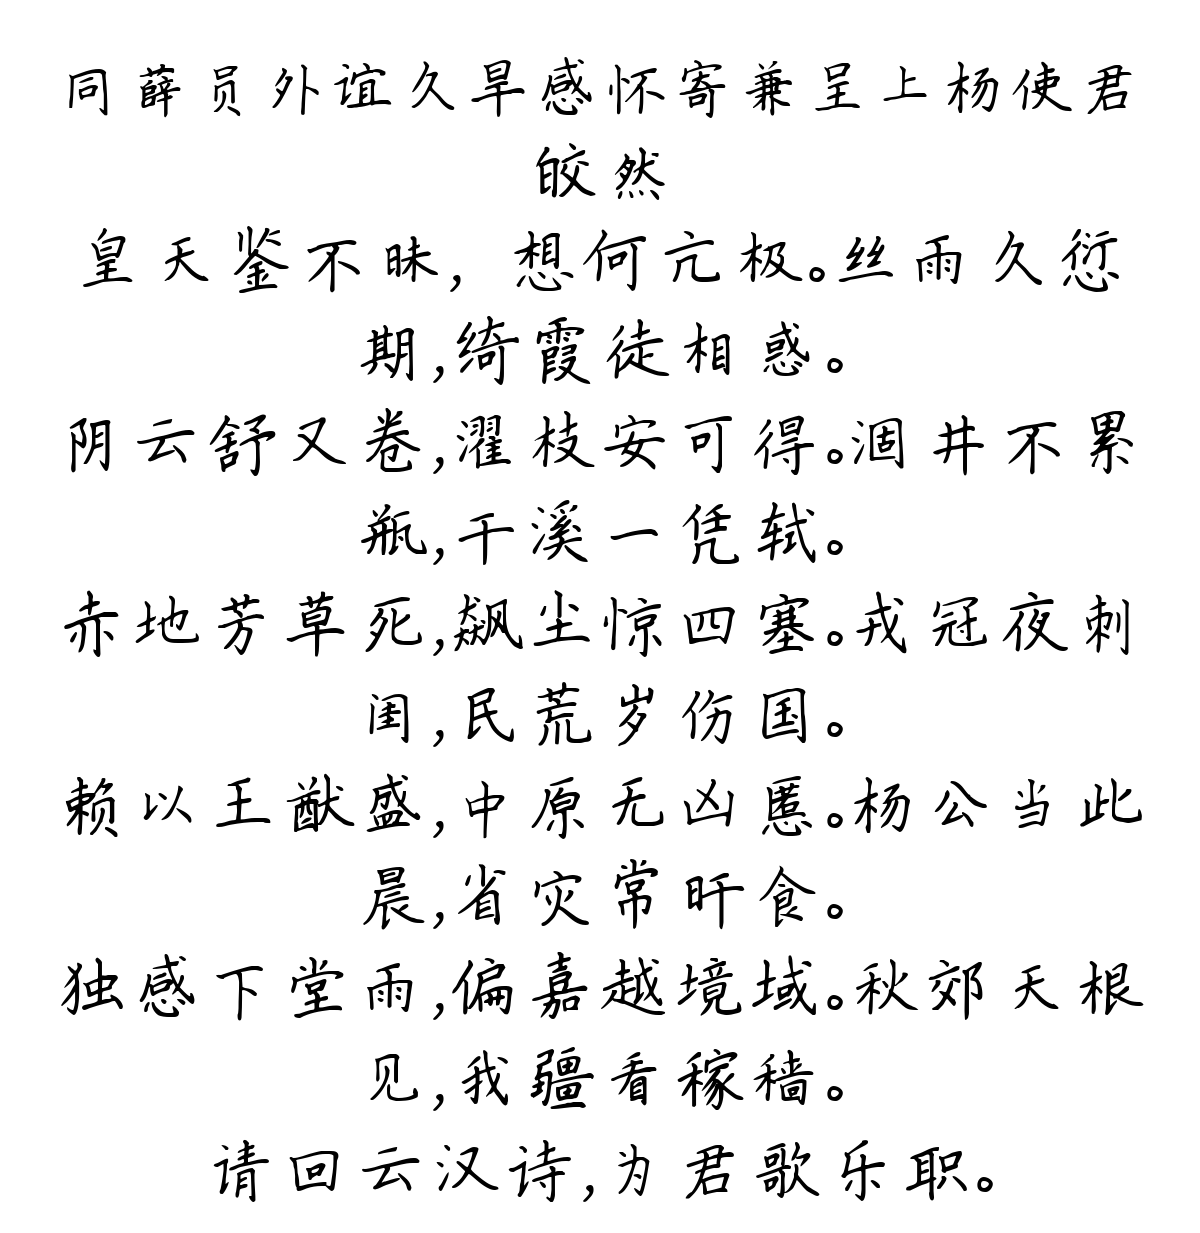 同薛员外谊久旱感怀寄兼呈上杨使君
皎然
皇天鉴不昧，想何亢极。丝雨久愆
期,绮霞徒相惑。
阴云舒又卷,濯枝安可得。涸井不累
瓶,干溪一凭轼。
赤地芳草死,飙尘惊四塞。戎冠夜刺
闺,民荒岁伤国。
赖以王猷盛,中原无凶慝。杨公当此
晨,省灾常旰食。
独感下堂雨,偏嘉越境域。秋郊天根
见,我疆看稼穑。
请回云汉诗,为君歌乐职。